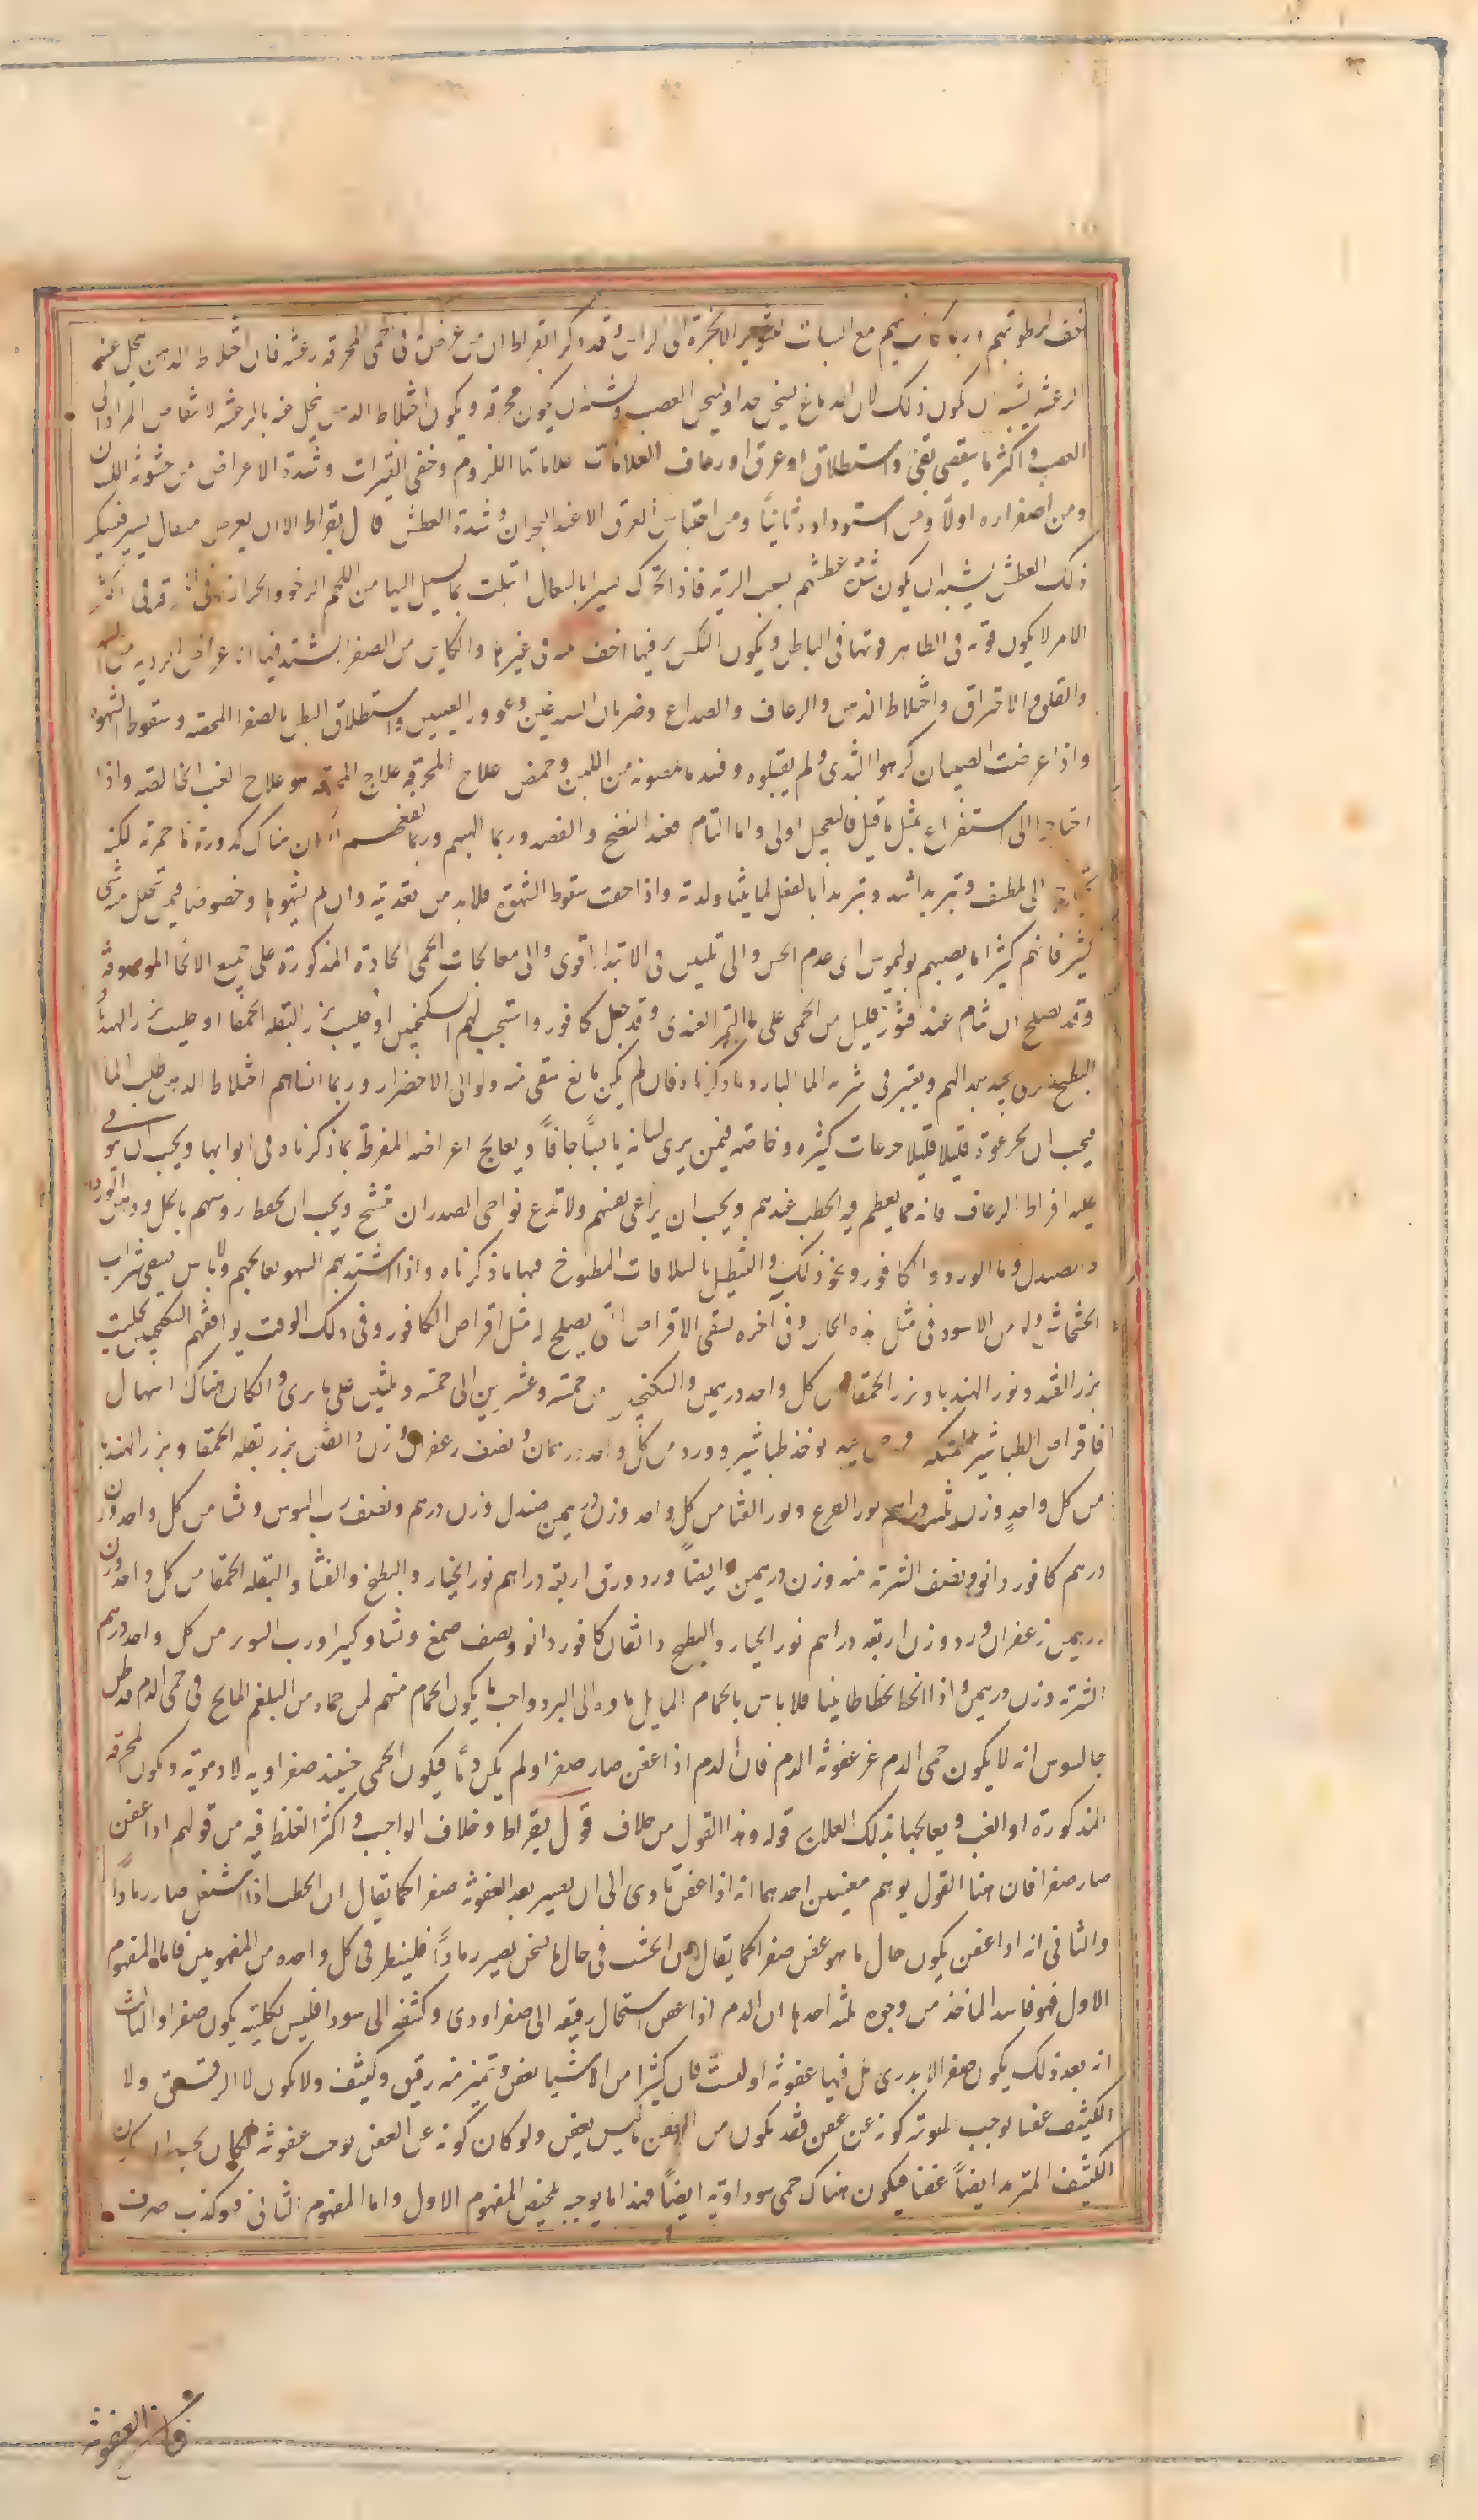 اخف لرطوبتهم وربما كان بهم مع السبات لتصعير الابخرة الى الراس وقد ذكر ابقراط ان من عرض له فى الحمى المحرقه رعشه فان اختلاط الذهن يحل عنه
الرعشه يشبه ان يكون ذلك لان الدماغ يسخن جدا ويسخن العصب ويشبه ان يكون محرقه ويكون اختلاط الذهن ينحل عنه بالرعشه لانتفاض المراد الى
العصب واكثر ما ينقضى بقى واستطلاق او عرق او رعاف العلامات علاماتها اللزوم وخفى الفترات وشدة الاعراض من خشونه اللسان
ومن اصفراره اولاً ومن اسوداده ثانياً ومن احتباس العرق الا عند البحران وشدة العطش قال بقراط الا ان يعرض سعال يسير فيسكن
ذلك العطش يشبه ان يكون شدة عطشهم بسبب الرية فاذا تحركت يسيرا بالسعال ابتلت بما يسيل اليها من اللحم الرخو والحرارة فى المحرقه فى اكثر
الامر لا يكون قوته فى الظاهر قوتها فى الباطن ويكون النكس فيها اخف منه فى غيرها والكاين من الصفرا يشتد فيها الاعراض الرديه من السهر
والقلق والاحتراق واختلاط الذهن والرعاف والصداع وضربان الصدغين وغوور العينين واستطلاق البطن بالصفرا المحضه وسقوط الشهوة
واذا عرضت الصبيان كرهوا الثدى ولم يقبلوه وفسد ما يمصونه من اللبن وحمض علاج المحرقه علاج المحرقه هو علاج الغب الخالصه واذا
احتاجوا الى استفراغ بمثل ما قيل فالتعجيل اولى واما التام فعند النضج والفصد وربما الهبهم وربما نفعهم ان كان هناك كدورة ما حمرة لكنه
يحتاج الى لطف وتبريد اشد وتبريدا بالفعل لما يتناولونه واذا خفت سقوط الشهوة فلا بد من تغذيته وان لم يشتهوا وخصوصا فيمن تحلل منه شى
كثير فانهم كثيرا ما يصيبهم بوليموس اى عدم الحس والى تليين فى الابتدا اقوى والى معالجات الحمى الحادة المذكورة على جميع الانحا الموصوفه
وقد يصلح ان ينام عند فتور قليل من الحمى على ما التمر الهندى وقد جعل كافور واستحب لهم السكنجبين او حليب بزر البقله الحمقا او حليب بزر الهندبا
فيجب ان يجرعوه قليلا قليلا جرعات كثيره وخاصه فيمن يرى لسانه يابساً جافاً ويعالج اعراضه المفرطة بما ذكرناه فى ابوابها ويجب ان يتوقى
عليه افراط الرعاف فانه مما يعظم فيه الخطب عندهم ويجب ان يراعى نفسهم ولا تدع نواحى الصدر ان تشنج ويجب ان يحفظ روسهم بالخل ودهن الورد
والصندل وما الورد والكافور ونحو ذلك والتنطيل بالسلاقات المطبوخ فيها ما ذكرناه واذا اشتد بهم السهر نعالجهم ولا باس بسقى شراب
الخشخاش وله من الاسود فى مثل هذه الحال وفى آخره نسقى الاقراص التى يصلح له مثل اقراص الكافور وفى ذلك الوقت يوافقهم السكنجبين بحليب
بزر القثد وبزر الهندبا وبزر الحمقا من كل واحد درهمين والسكنجبين من خمسه وعشرين الى خمسه وثلثين على ما يرى وان كان هناك اسهال
فاقراص الطباشير الممسكه يوخذ طباشير وورد من كل واحد درهمان ونصف زعفران وزن دانقين بزر بقله الحمقا وبزر الهندبا
من كل واحدٍ وزن ثلثه دراهم بزر القرع وبزر القثا من كل واحد وزن درهمين صندل وزن درهم ونصف رب السوس ونشا من كل واحد وزن
درهم كافور دانق ونصف الشربه منه وزن درهمين وايضاً ورد ورق اربعه دراهم بزر الخيار والبطيخ والقثا والبقله الحمقا من كل واحد وزن
درهمين زعفران ورد وزن اربعه دراهم بزر الخيار والبطيخ دانقان كافور دانق ونصف صمغ ونشا وكثيرا ورب السوس من كل واحد درهم
الشربه وزن درهمين واذا انحط انحطاطا بينا فلا باس بالحمام المايل ماوه الى البرد واحب ما يكون الحمام منهم لمن حماه من البلغم المالح فى حمى الدم قد ظن
جالينوس انه لا يكون حمى الدم عن عفونه الدم فان الدم اذا عفن صار صفرا ولم يكن دماً فيكون الحمى حينئذ صفراويه لا دمويه ويكون المحرقه
المذكورة او الغب ويعالجها بذلك العلاج قوله وهذا القول من خلاف قول بقراط وخلاف الواجب واكثر الغلط فيه من قولهم اذا عفن
صار صفرا فان هذا القول يوهم معنيين احدهما انه اذا عفن تادى الى ان يصير بعد العفونه صفرا كما يقال ان الحطب اذا اشتعل صار رماداً
والثانى انه اذا عفن يكون حال ما هو عفن صفرا كما يقال ان الخشب فى حال ما يسخن يصير رماداً فلينظر فى كل واحده من المفهومين فاما المفهوم
الاول فهو فاسد الماخذ من وجوه ثلثه احدها ان الدم اذا عفن استحال رقيقه الى صفرا ودى وكثيفه الى سودا فليس بكليته يكون صفرا والثالث
انه بعد ذلك يكون صفرا لا يدرى هل فيها عفونه او ليست فان كثيرا من الاشيا يعفن وتميز منه رقيق وكثيف ولا يكون لا الرقيق ولا
الكثيف عفنا يوجب لموته كونه عن عفن فقد يكون من العفن ما ليس بعفن ولو كان كونه عن العفن يوجب عفونته لكان يجب ان يكون
الكثيف المترمد ايضاً عفنا فيكون هناك حمى سوداويه ايضاً فهذا ما يوجبه تلخيص المفهوم الاول واما المفهوم الثانى فهو كذب صرف
فان العفونه